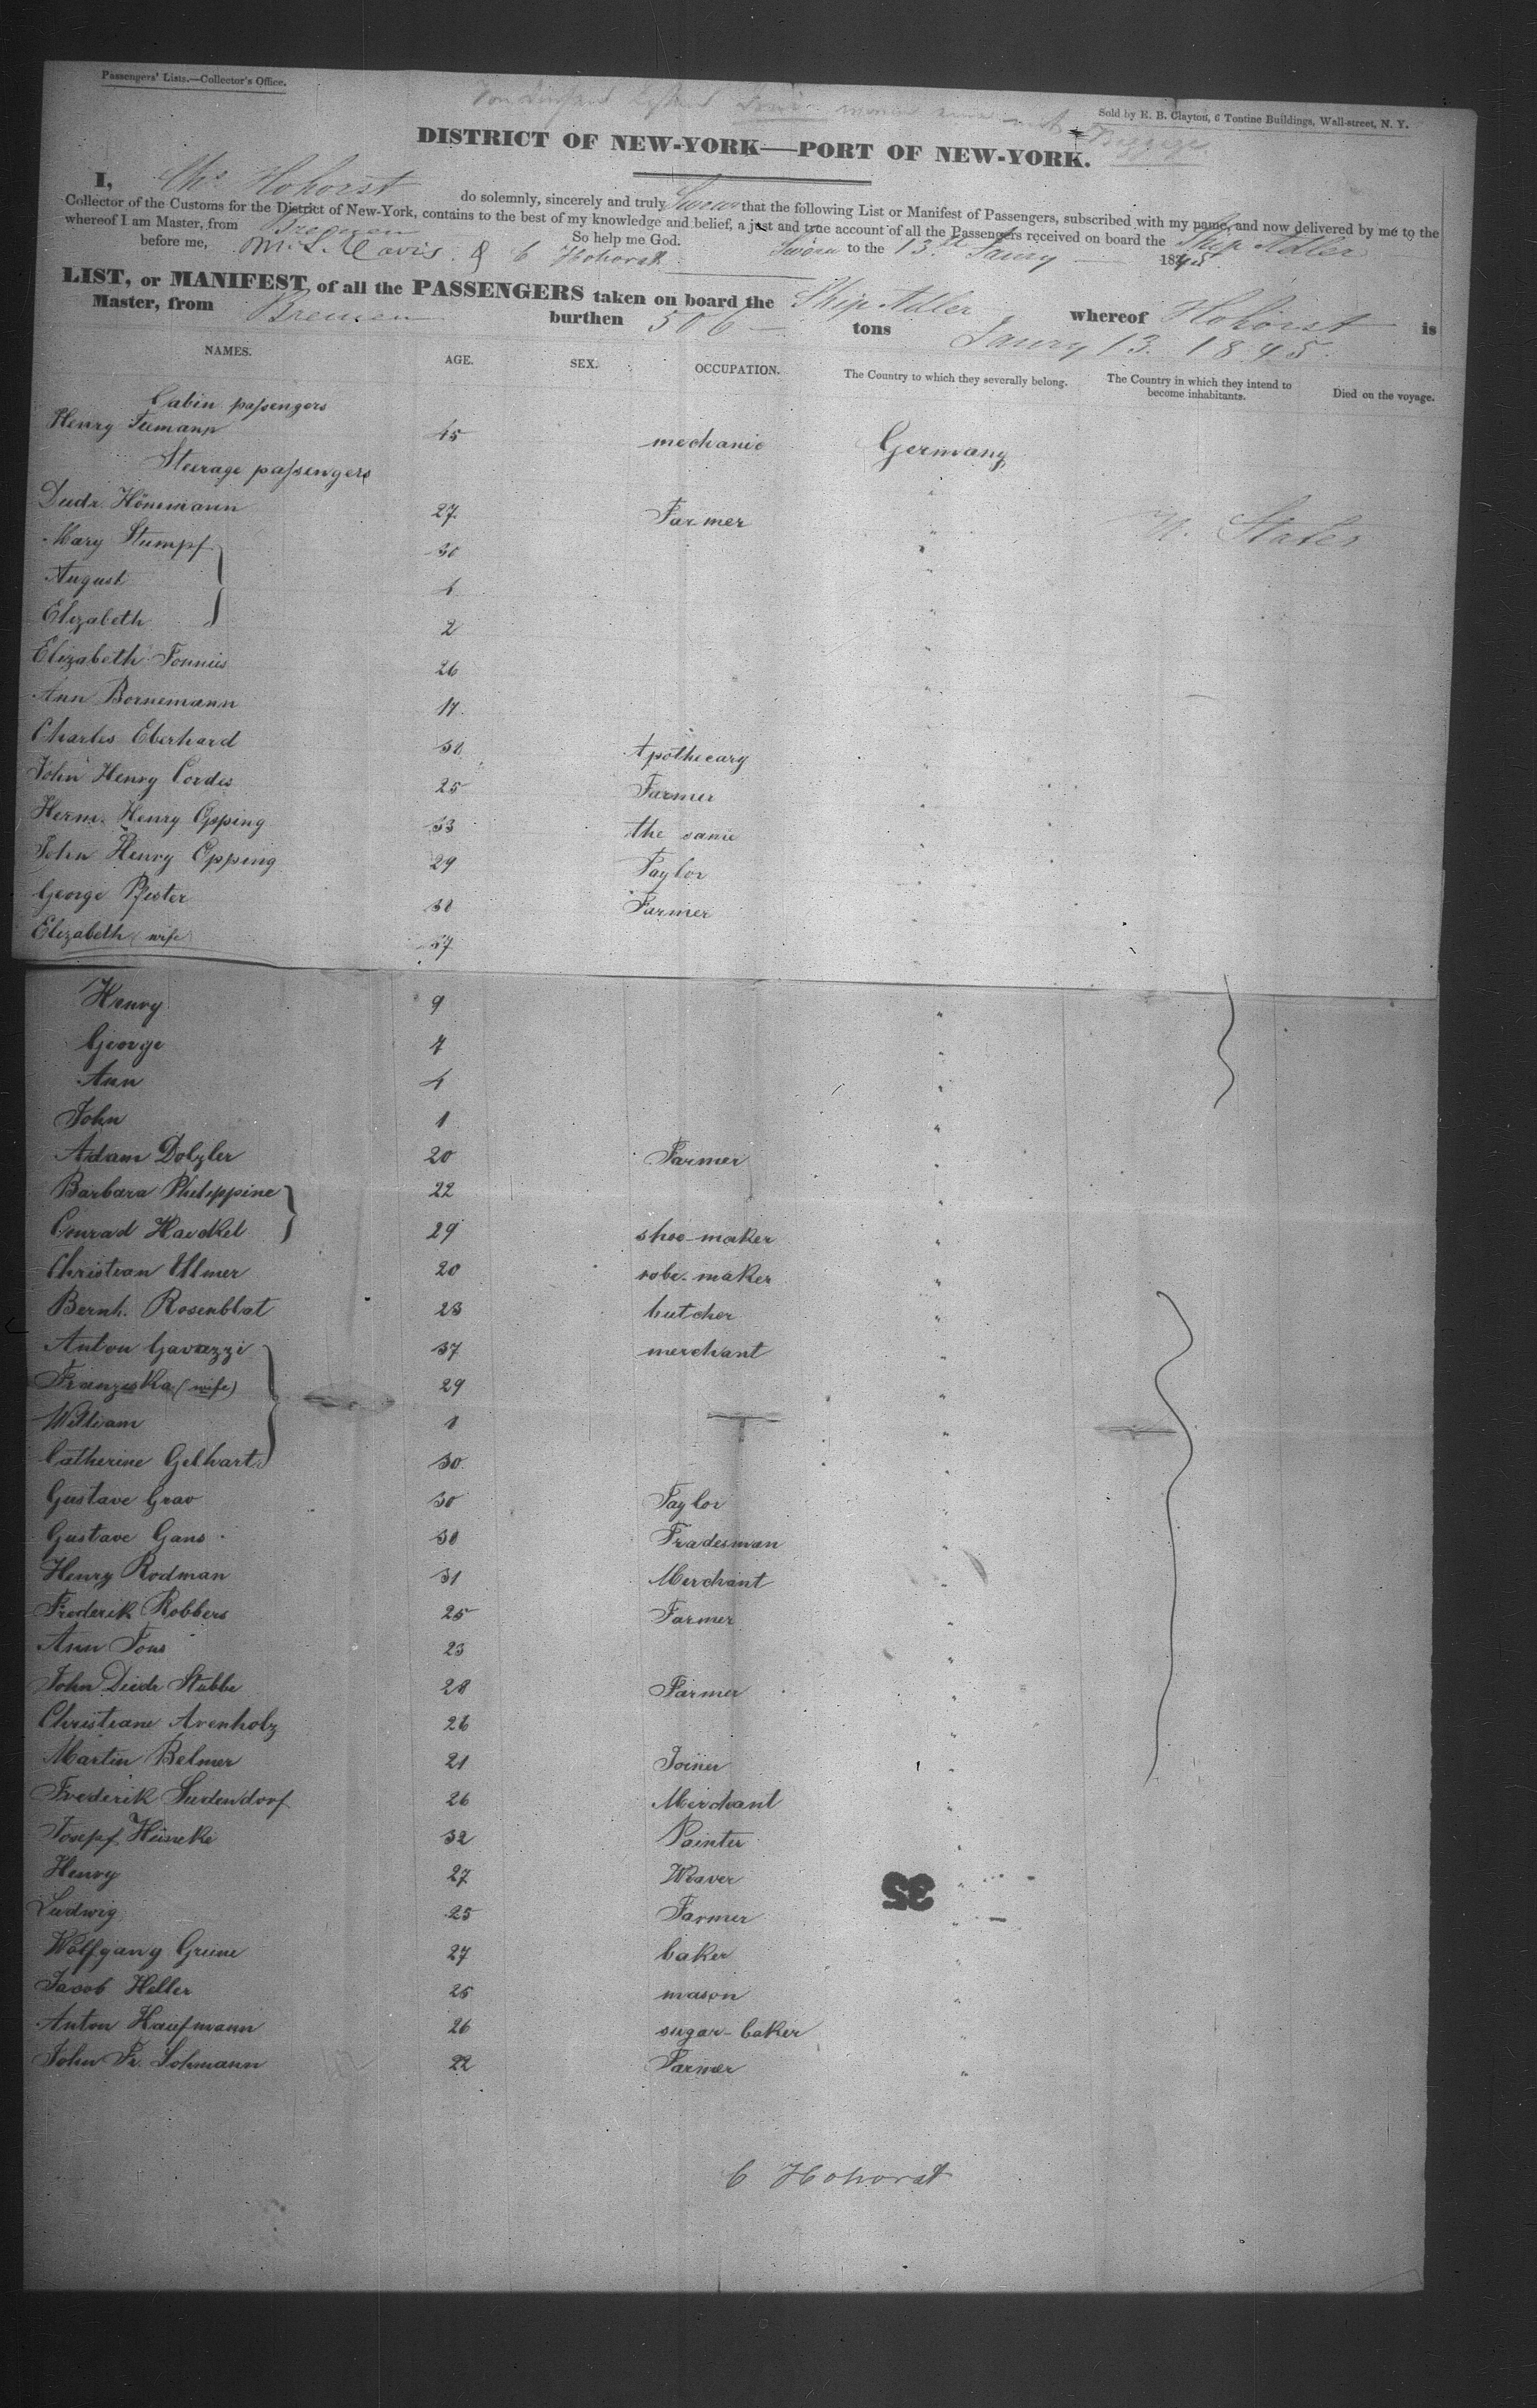 Passengers' Lists.—Collector's Office.
Sold by E. B. Clayton, 6 Tontine Buildings, Wall-street, N. Y.
DISTRICT OF NEW-YORK—PORT OF NEW-YORK.
I, Chs. Hohorst do solemnly, sincerely and truly Swear that the following List or Manifest of Passengers, subscribed with my name, and now delivered by me to the
Collector of the Customs for the District of New-York, contains to the best of my knowledge and belief, a just and true account of all the Passengers received on board the Ship Adler
whereof I am Master, from Bremen So help me God.
before me, C Hohorst Sworn to the 13th Jany 1845
LIST, or MANIFEST of all the PASSENGERS taken on board the Ship Adler whereof Hohorst is
Master, from Bremen burthen 506 tons Jany 13. 1845.
NAMES. AGE. SEX. OCCUPATION. The Country to which they severally belong. The Country in which they intend to become inhabitants. Died on the voyage.
Cabin passengers
Henry Tiemann 45 mechanic Germany
Steerage passengers
Diedr. Hönemann 27 Farmer " U. States
Mary Stumpf 30 "
August 4 "
Elizabeth 2 "
Elizabeth Tonnies 26 "
Ann Bornemann 17 "
Charles Eberhard 31 Apothecary "
John Henry Cordes 25 Farmer "
Herm. Henry Epping 33 the same "
John Henry Epping 29 Taylor "
George Pfister 38 Farmer "
Elizabeth (wife) 37
Henry 9 "
George 7 "
Ann 4 "
John 1 "
Adam Dolzler 20 Farmer "
Barbara Philippine 22 "
Conrad Haeckel 29 shoe-maker "
Christian Ullmer 20 robe-maker "
Bernh. Rosenblat 23 butcher "
Anton Gavazzi 37 merchant "
Franziska (wife) 29 "
William 1 "
Catherine Gelhart 30 "
Gustave Grav 30 Taylor "
Gustave Gans 30 Tradesman "
Henry Rodman 31 Merchant "
Frederik Robbers 25 Farmer "
Ann Tons 23 "
John Diedr Stubbe 28 Farmer "
Christiane Avenholz 26 "
Martin Belmer 21 Joiner "
Frederik Sudendorf 26 Merchant "
Josepf Hüneke 32 Painter "
Henry 27 Weaver "
Ludwig 25 Farmer "
Wolfgang Greine 27 baker "
Jacob Heller 25 mason "
Anton Haufmann 26 sugar-baker "
John Fr. Lohmann 22 Farmer "
C Hohorst